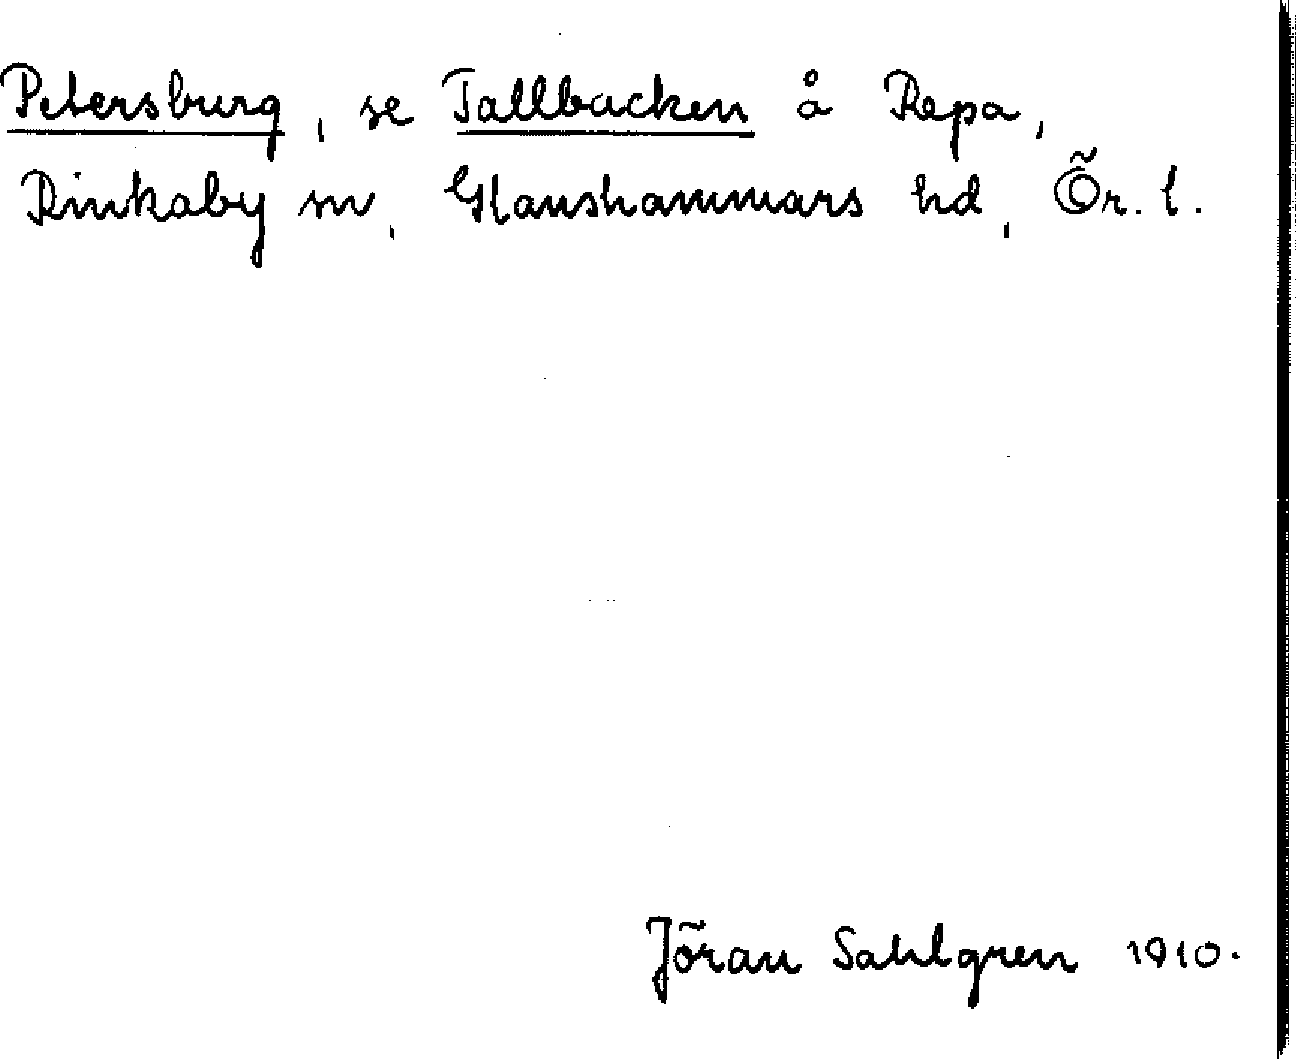 Petersburg, se Tallbacken å Repa,
Rinkaby sn, Glanshammars hd, Ör. l.
Jöran Sahlgren 1910.